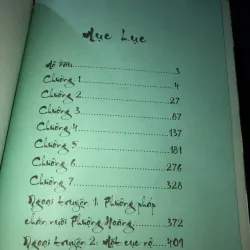 Mục Lục
Mở đầu 3
Chương 1 4
Chương 2 27
Chương 3 87
Chương 4 137
Chương 5 181
Chương 6 276
Chương 7 328
Ngoại truyện 1: Phương pháp
chăn nuôi Phượng Hoàng 372
Ngoại truyện 2: Một cục rơ 401